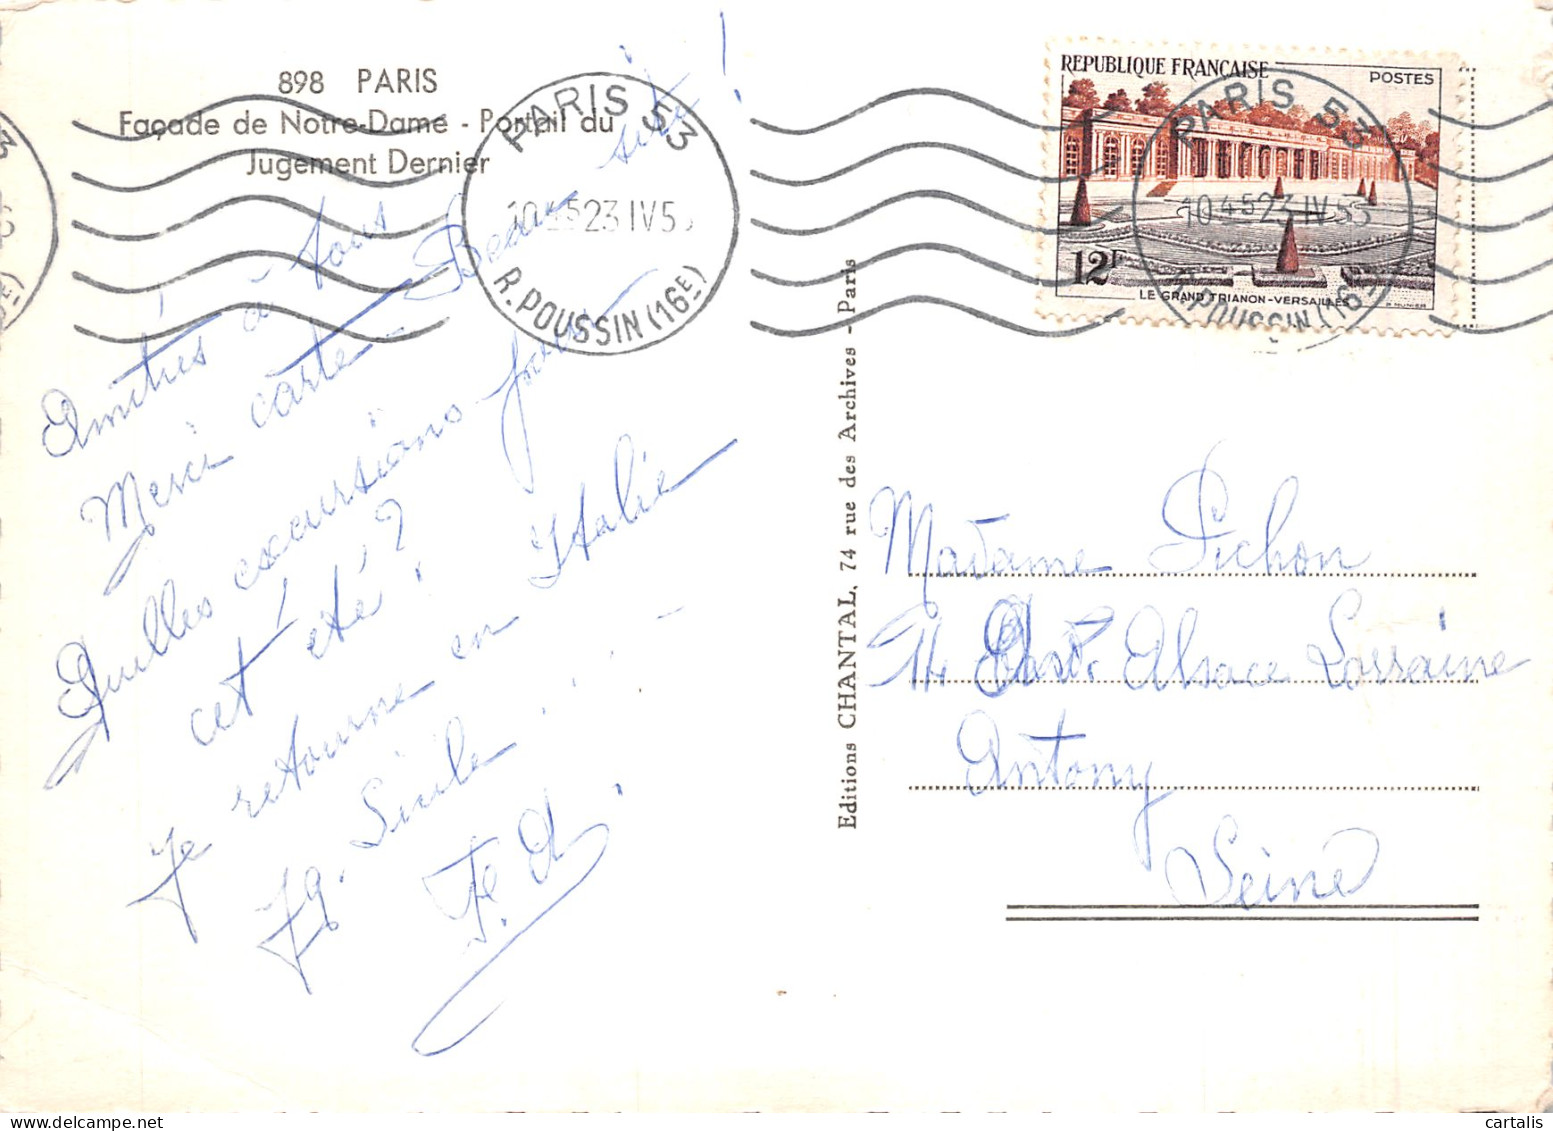 898 PARIS
Façade de Notre-Dame - Portail du
Jugement Dernier
PARIS 53
23 IV 5
R. POUSSIN (16E)
REPUBLIQUE FRANÇAISE
POSTES
PARIS 53
10 45 23 IV 55
R. POUSSIN (16
12F
LE GRAND TRIANON-VERSAILLES
Amitiés à tous
Merci carte Beau site!
Quelles excursions pour
cet été?
Je retourne en Italie
Sicile
Editions CHANTAL, 74 rue des Archives - Paris
Madame Pichon
Alsace Lorraine
Antony
Seine
cartalis